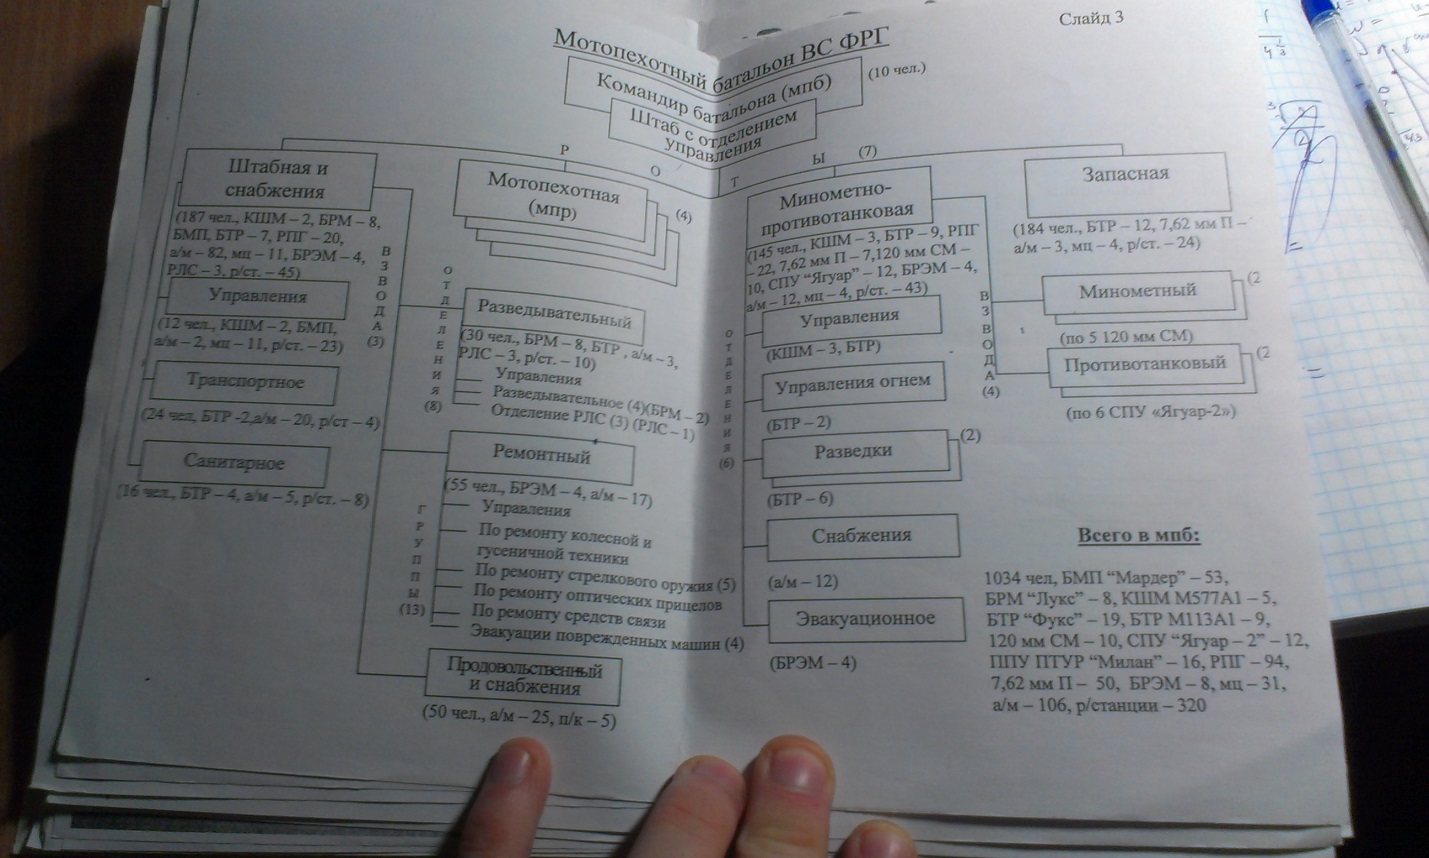 Слайд 3
Мотопехотный батальон ВС ФРГ
Командир батальона (мпб)
(10 чел.)
Штаб с отделением
управления
Р О Т Ы (7)
Штабная и
снабжения
(187 чел., КШМ – 2, БРМ – 8,
БМП, БТР – 7, РПГ – 20,
а/м – 82, мц – 11, БРЭМ – 4,
РЛС – 3, р/ст. – 45)
Управления
(12 чел., КШМ – 2, БМП,
а/м – 2, мц – 11, р/ст. – 23)
Транспортное
(24 чел, БТР -2,а/м – 20, р/ст – 4)
Санитарное
(16 чел., БТР – 4, а/м – 5, р/ст. – 8)
ВЗВОДА
(3)
Мотопехотная
(мпр)
(4)
ОТДЕЛЕНИЯ
(8)
Разведывательный
(30 чел., БРМ – 8, БТР , а/м – 3,
РЛС – 3, р/ст. – 10)
Управления
Разведывательное (4)(БРМ – 2)
Отделение РЛС (3) (РЛС – 1)
Ремонтный
(55 чел., БРЭМ – 4, а/м – 17)
ГРУППЫ
(13)
Управления
По ремонту колесной и
гусеничной техники
По ремонту стрелкового оружия (5)
По ремонту оптических прицелов
По ремонту средств связи
Эвакуации поврежденных машин (4)
Продовольственный
и снабжения
(50 чел., а/м – 25, п/к – 5)
Минометно-
противотанковая
(145 чел., КШМ – 3, БТР – 9, РПГ
– 22, 7,62 мм П – 7,120 мм СМ –
10, СПУ “Ягуар” – 12, БРЭМ – 4,
а/м – 12, мц – 4, р/ст. – 43)
ОТДЕЛЕНИЯ
(6)
Управления
(КШМ – 3, БТР)
Управления огнем
(БТР – 2)
Разведки
(2)
(БТР – 6)
Снабжения
(а/м – 12)
Эвакуационное
(БРЭМ – 4)
ВЗВОДА
(4)
Запасная
(184 чел., БТР – 12, 7,62 мм П –
а/м – 3, мц – 4, р/ст. – 24)
Минометный
(2
(по 5 120 мм СМ)
Противотанковый
(2
(по 6 СПУ «Ягуар-2»)
Всего в мпб:
1034 чел, БМП “Мардер” – 53,
БРМ “Лукс” – 8, КШМ М577А1 – 5,
БТР “Фукс” – 19, БТР М113А1 – 9,
120 мм СМ – 10, СПУ “Ягуар – 2” – 12,
ППУ ПТУР “Милан” – 16, РПГ – 94,
7,62 мм П – 50, БРЭМ – 8, мц – 31,
а/м – 106, р/станции – 320